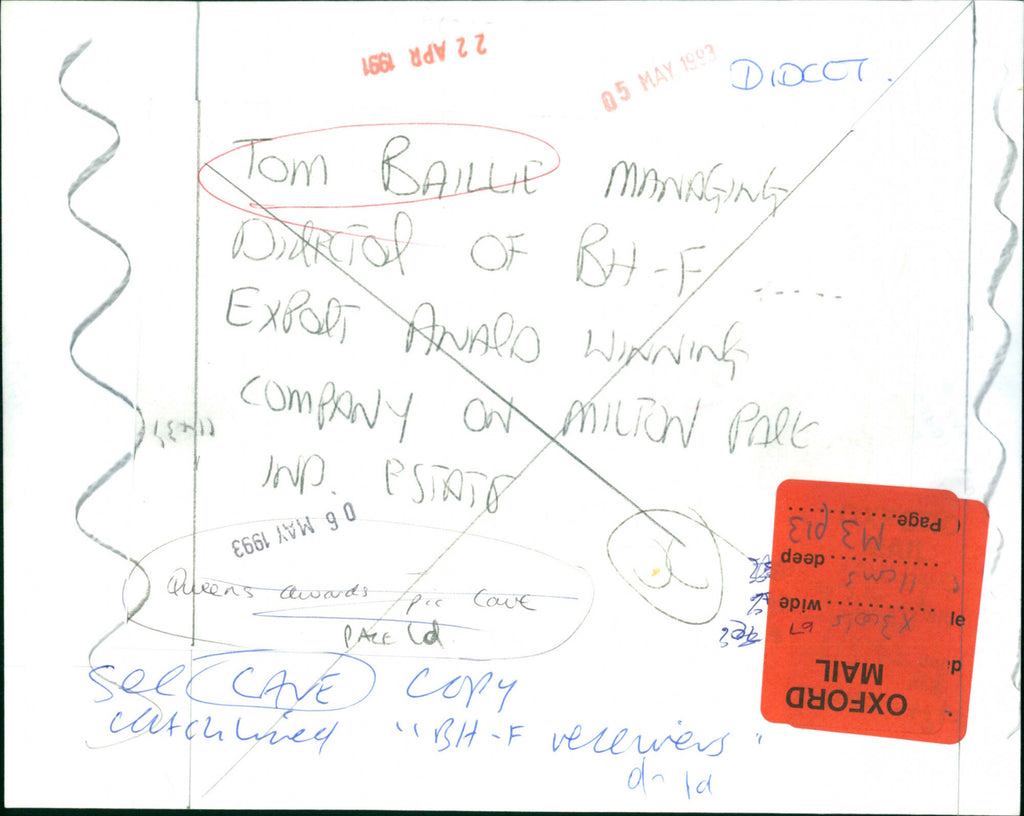 22 APR 1991
05 MAY 1993
DIDCOT.
TOM BAILLIE MANAGING
DIRECTOR OF BH-F .....
EXPORT AWARD WINNING
COMPANY ON MILTON PARK
IND. ESTATE
06 MAY 1993
Queens awards pic Cave
PAGE
see CAVE copy
catchlined "BH-F receivers"
OXFORD
MAIL
wide
11cms deep
Page M3 p13